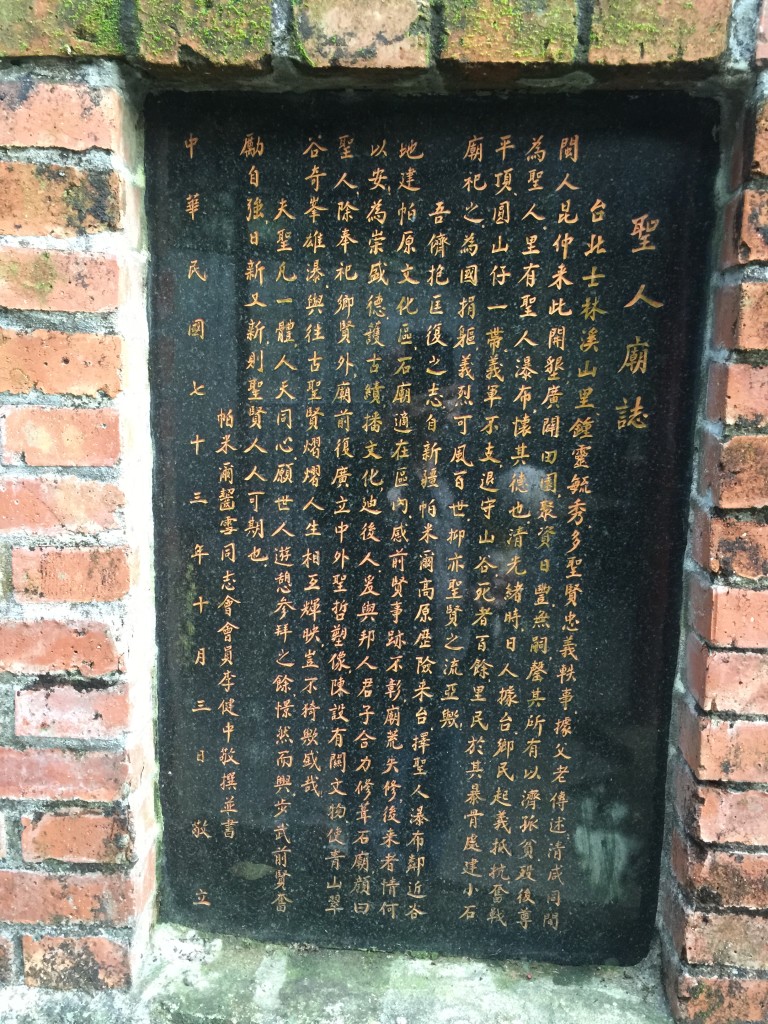 聖人廟誌
台北士林溪山里鍾靈毓秀多聖賢忠義軼事據父老傳述清咸同間
閩人昆仲來此開墾廣闢田園聚資日豐無嗣罄其所有以濟孤貧歿後尊
為聖人里有聖人瀑布懷其德也清光緒時日人據台鄉民起義抵抗奮戰
平頂圓山仔一帶義軍不支退守山谷死者百餘里民於其暴骨處建小石
廟祀之為國捐軀義烈可風百世抑亦聖賢之流亞歟
吾儕抱匡復之志自新疆帕米爾高原歷險來台擇聖人瀑布鄰近谷
地建帕原文化區石廟適在區內感前賢事跡不彰廟荒失修後來者情何
以安為崇盛德護古績播文化迪後人爰與邦人君子合力修葺石廟顏曰
聖人除奉祀鄉賢外廟前後廣立中外聖哲塑像陳設有關文物使青山翠
谷奇峯雄瀑與往古聖賢熠熠人生相互輝映豈不猗歟盛哉
夫聖凡一體人天同心願世人遊憩參拜之餘憬然而興步武前賢奮
勵自強日新又新則聖賢人人可期也
帕米爾齧雪同志會會員李健中敬撰並書
中華民國七十三年十月三日敬立